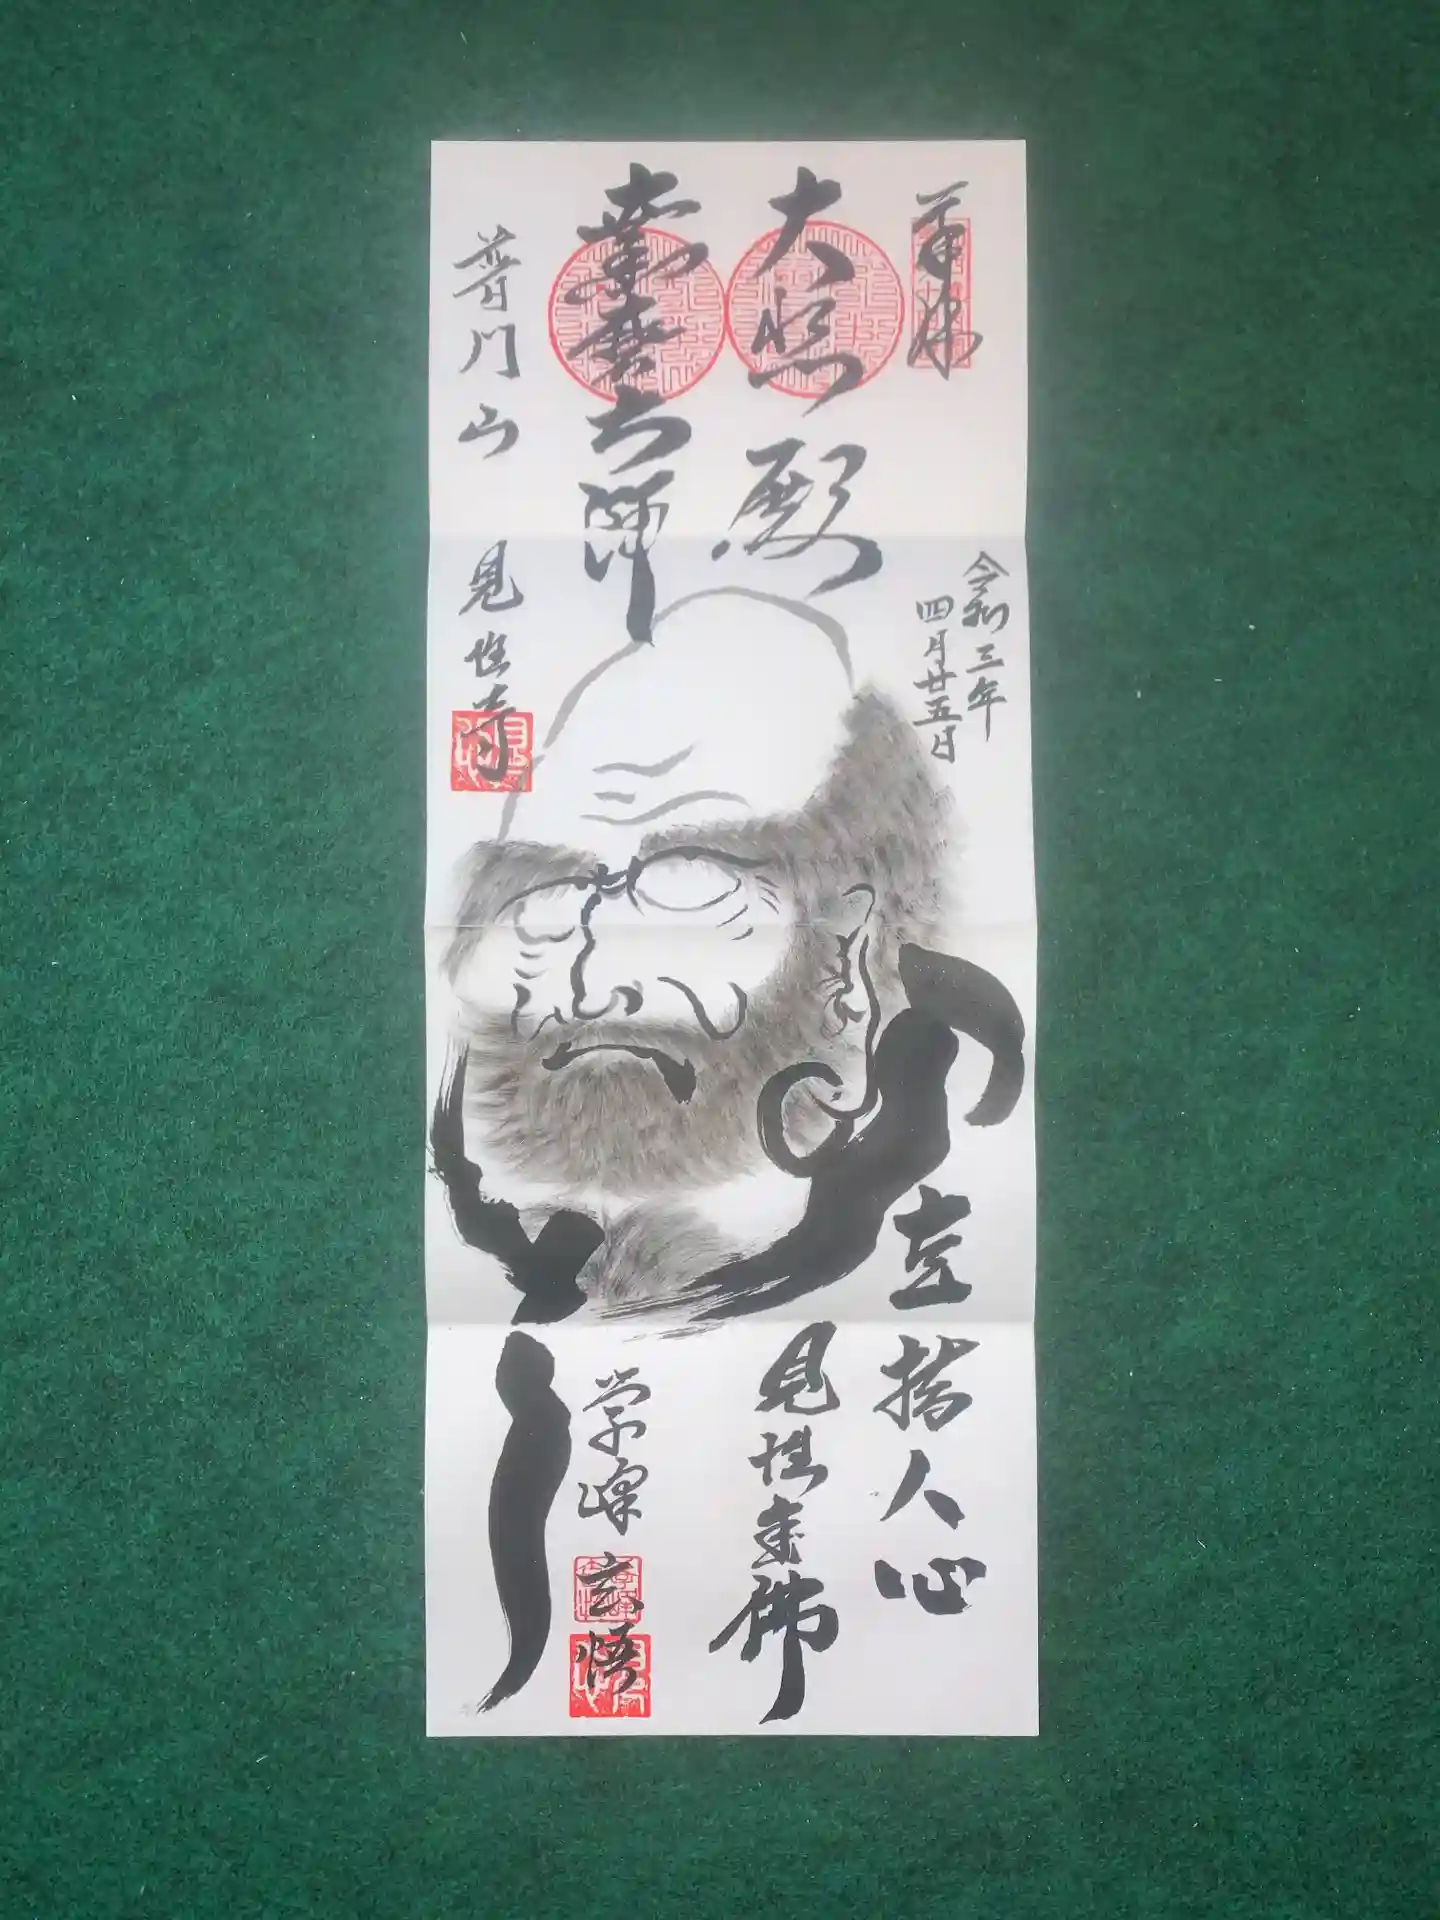 奉拝
大照殿
達磨大師
普門山
見性寺
令和三年
四月廿五日
直指人心
見性成佛
学峰
玄悟